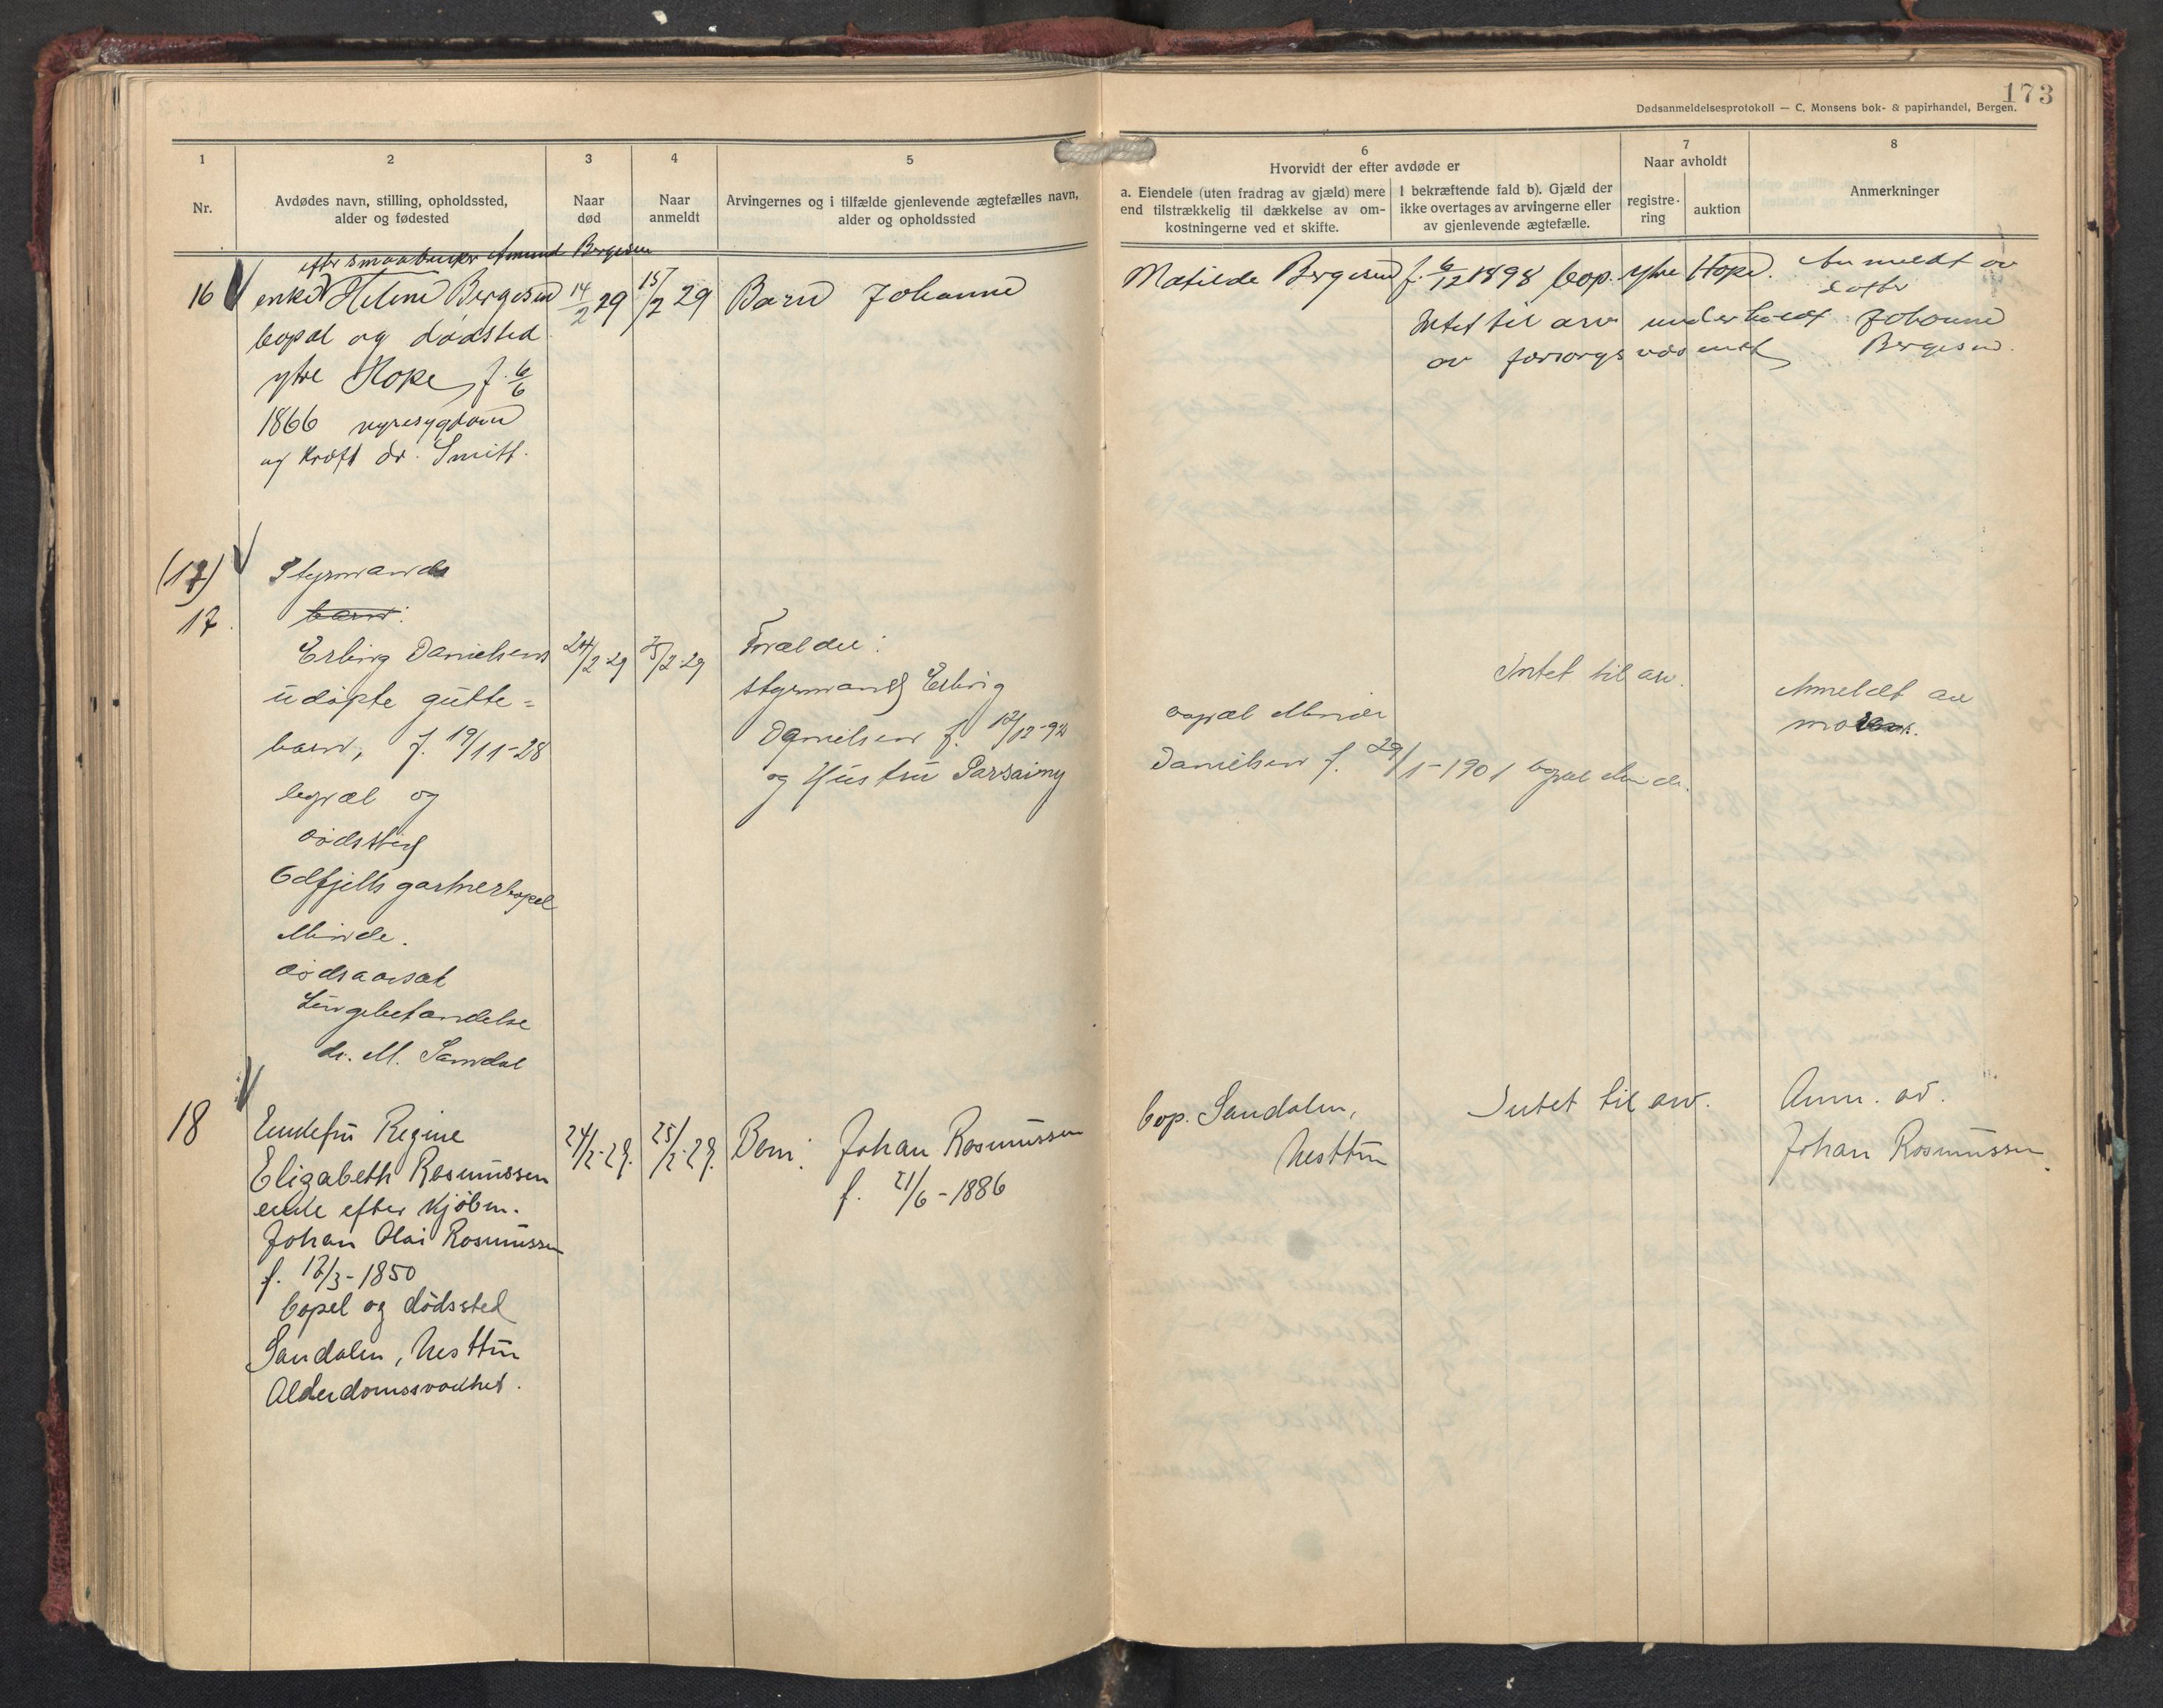 173
Dødsanmeldelsesprotokoll — C. Monsens bok- & papirhandel, Bergen.
1
Nr.
2
Avdødes navn, stilling, opholdssted,
alder og fødested
3
Naar
død
4
Naar
anmeldt
5
Arvingernes og i tilfælde gjenlevende ægtefælles navn,
alder og opholdssted
6
Hvorvidt der efter avdøde er
a. Eiendele (uten fradrag av gjæld) mere
end tilstrækkelig til dækkelse av om-
kostningerne ved et skifte.
I bekræftende fald b). Gjæld der
ikke overtages av arvingerne eller
av gjenlevende ægtefælle.
7
Naar avholdt
registre-
ring
auktion
8
Anmerkninger
16
efter smaabruker Amund Bergesen
enke Helene Bergesen
bopæl og dødsted
ytre Hope, f. 6/6
1866 nyresygdom
og kræft dr. Smitt.
14/2 29
15/2 29
Barn Johanne
Matilde Bergesen f. 6/12 1898 bop. ytre Hope.
Intet til arv underholdt
av forsorgsvæsenet
Anmeldt av
datter
Johanne
Bergesen.
(17)
17.
Styrmand
barn.
Erling Danielsens
udøpte gutte=
barn, f. 19/11-28
bopæl og
dødssted
Odfjells gartnerbopæl
Minde.
dødsaarsak
Lungebetændelse
dr. M. Sandal
24/2-29
25/2-29
Forældre:
styrmand Erling
Danielsen f. 12/12-92
og Hustru
bopæl Minde
Danielsen f. 29/1-1901 bopæl Minde.
Intet til arv.
Anmeldt av
moren.
18
Enkefru Regine
Elizabeth Rasmussen
enke efter kjøbm.
Johan Olai Rasmussen
f. 12/3-1850
bopel og dødssted
Sandalen, Nesttun
Alderdomssvakhet.
24/2-29.
25/2-29.
Barn: Johan Rasmussen
f. 21/6-1886
bop. Sandalen,
Nesttun
Intet til arv.
Anm. av.
Johan Rasmussen.